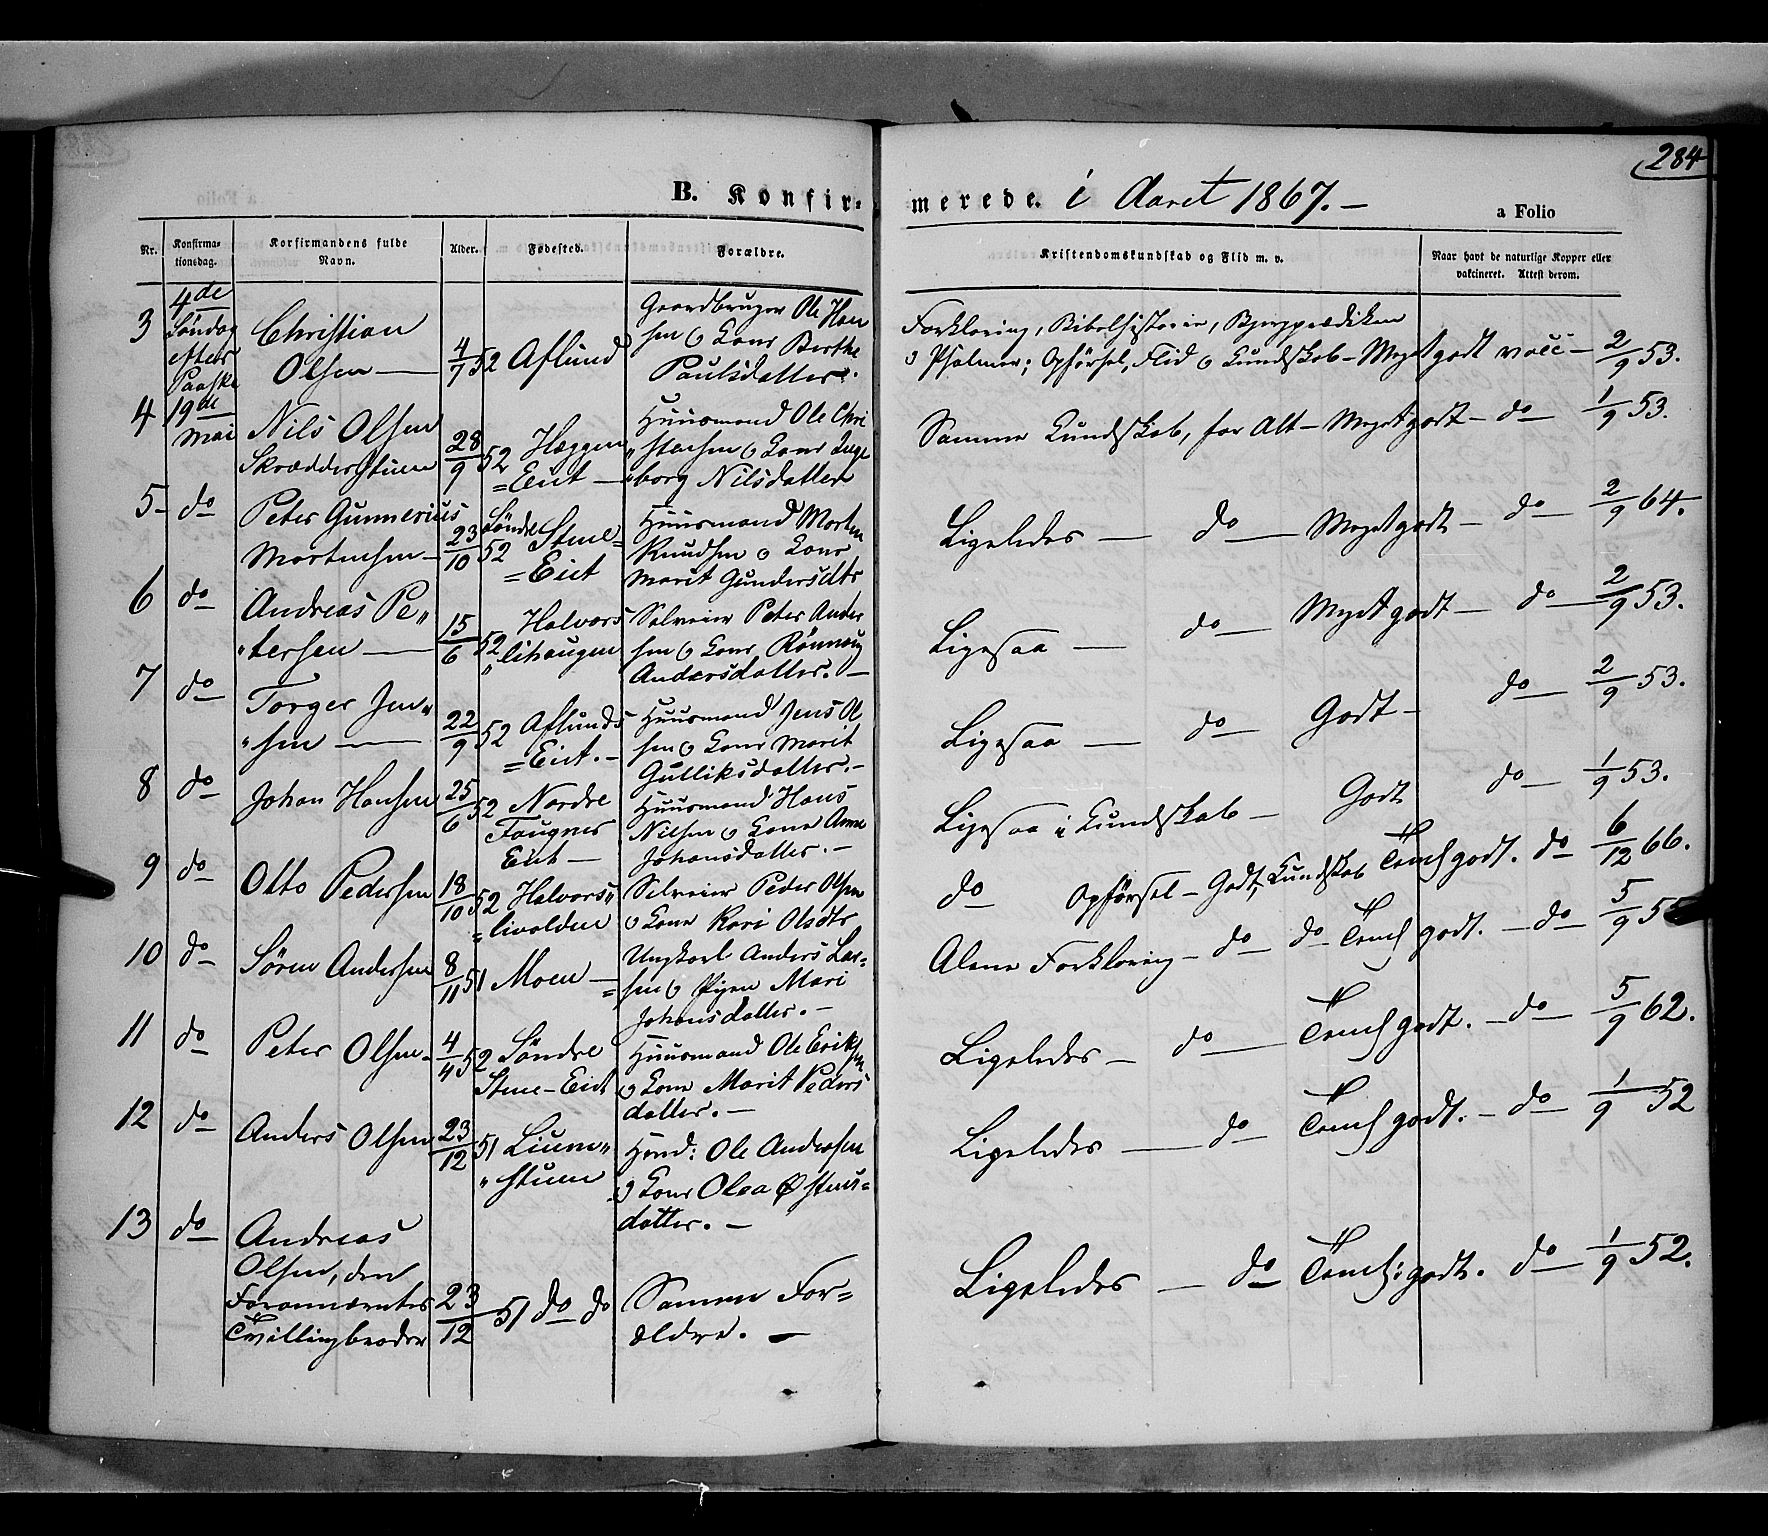 284
B. Konfirmerede. i Aaret 1867. —
a Folio
Nr.
Konfirmationsdag.
Korfirmandens fulde Navn.
Alder.
Fødested.
Forældre.
Kristendomskundskab og Flid m. v.
Naar havt de naturlige Kopper eller vakcineret. Attest derom.
3
4de Søndag efter Paaske 19de Mai
Christian
Olsen —
4/7 52
Aslund
Gaardbruger Ole Han
sen o Kone Berthe
Paulsdatter.
Forklaring, Bibelhistorie, Bjergprædiken
o Psalmer; Opførsel, Flid o Kundskab — Meget godt
vacc — 2/9 53.
4
Nils Olsen
Skrædderstuen
28/9 52
Haggen
=Eiet —
Huusmand Ole Chri
"stensen o Kone Inge
"borg Nilsdatter
Samme Kundskab, for Alt — Meget godt —
do — 1/9 53.
5 — do
Peter Gunnerius
Mortensen —
23/10 52
Søndre
Stene=
=Eiet
Huusmand Morten
Knudsen o Kone
Marit Gundersdtr
Ligeledes — do — Meget godt —
do — 2/9 64.
6 do
Andreas Pe"
"tersen —
15/6 52
Halvors
"lihaugen
Selveier Peter Ander
sen o Kone Rønnaug
Andersdatter. —
Ligesaa — do — Meget godt —
do — 2/9 53.
7 do
Torger Jen"
"sen —
22/9 52
Aslunds
=Eiet. —
Huusmand Jens Ol
sen o Kone Marit
Gulliksdatter. —
Ligesaa — do — Godt —
do — 2/9 53.
8 do
Johan Hansen
25/6 52
Nordre
Fougner
Eiet —
Huusmand Hans
Nilsen o Kone Anne
Johansdatter. —
Ligesaa i Kundskab — Godt
do — 1/9 53.
9 do
Otto Pedersen
18/10 52
Halvors"
=livolden
Selveier Peder Olsen
o Kone Kari Olsdtr
do Opførsel — Godt, Kundskab Temlh godt.
do 6/12 66.
10 do
Søren Andersen
8/11 51
Moen —
Ungkarl Anders Lar=
=sen o Pigen Mari
Johansdatter. —
Alene Forklaring — do — do — Temlh godt. —
do — 5/9
11 do
Peter Olsen —
4/4 52
Søndre
Stene-Eiet
Huusmand Ole Eriksen
o Kone Marit Peders
datter. —
Ligeledes — do — Temlh godt. —
do — 5/9 62.
12 do
Anders Olsen
23/12 51
Lium"
"stuen
Hmd: Ole Andersen
o Kone Olea Østens=
datter. —
Ligeledes — do — Temlh godt. —
do — 1/9 52
13 do
Andreas
Olsen, den
Forannævntes
Tvillingbroder
23/12 51
do do
Samme For=
ældre. —
Ligeledes — do — Temlh: godt.
do — 1/9 52.